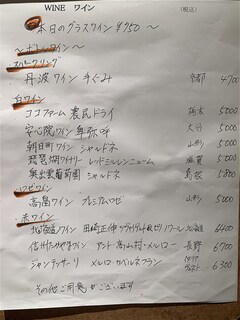 WINE ワイン (税込)
本日のグラスワイン ¥750 〜
〜ボトルワイン〜
・スパークリング
丹波ワイン てぐみ 京都 4700
・白ワイン
ココファーム 農民ドライ 栃木 5000
安心院ワイン 卑弥呼 大分 5000
朝日町ワイン シャルドネ 山形 5000
琵琶湖ワイナリー レッドミルレンニューム 滋賀 5000
奥出雲葡萄園 シャルドネ 島根 5800
・ロゼワイン
高畠ワイン プレミアムロゼ 山形 5000
・赤ワイン
北海道ワイン 田崎正伸 ツヴァイゲルト ピノノワール 北海道 6400
信州たかやまワイン アント 高山村・メルロー 長野 6700
ジャンティサーリ メルロ・カベルネフラン イタリア 6300
その他ご用意がございます